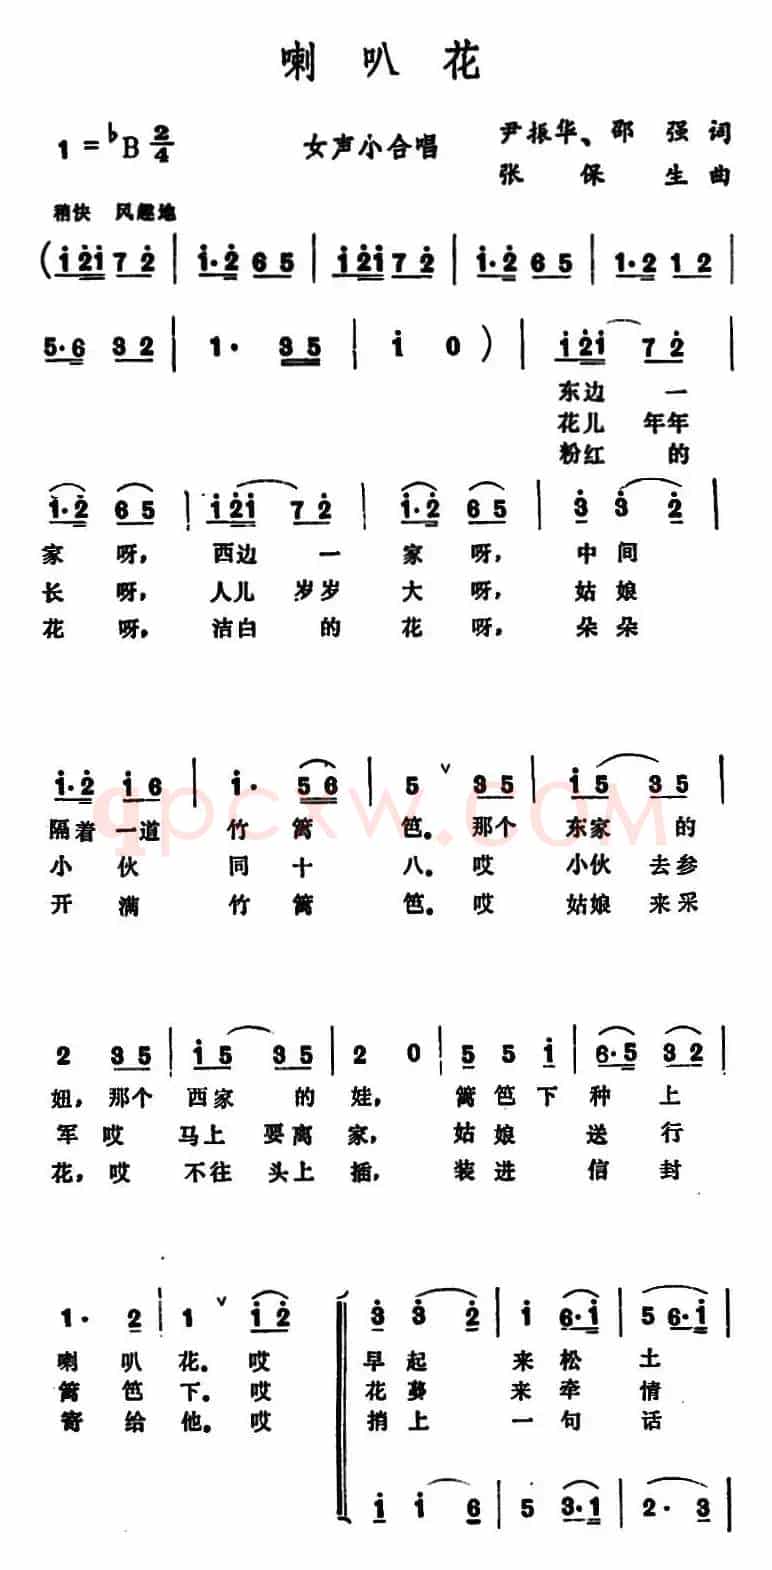 喇叭花
1=♭B 2/4 女声小合唱 尹振华、邵强词
张保生曲
稍快 风趣地
(i 2i 7 2 | i·2 6 5 | i 2i 7 2 | i·2 6 5 | 1·2 1 2 |
5·6 3 2 | 1· 35 | i 0 ) | i 2i 7 2 |
东边一
花儿年年
粉红的
i·2 6 5 | i 2i 7 2 | i·2 6 5 | 3 3 2 |
家呀,西边一家呀,中间
长呀,人儿岁岁大呀,姑娘
花呀,洁白的花呀,朵朵
i·2 i 6 | i· 56 | 5 ∨ 3 5 | i 5 3 5 |
qpcxw.com
隔着一道竹篱笆。那个东家的
小伙同十八。哎小伙去参
开满竹篱笆。哎姑娘来采
2 3 5 | i 5 3 5 | 2 0 | 5 5 i | 6·5 3 2 |
妞,那个西家的娃,篱笆下种上
军哎马上要离家,姑娘送行
花,哎不往头上插,装进信封
1· 2 | 1 ∨ i 2 | 3 3 2 | i 6·i | 5 6·i |
喇叭花。哎早起来松土
篱笆下。哎花蔓来牵情
寄给他。哎捎上一句话
i i 6 | 5 3·1 | 2· 3 |